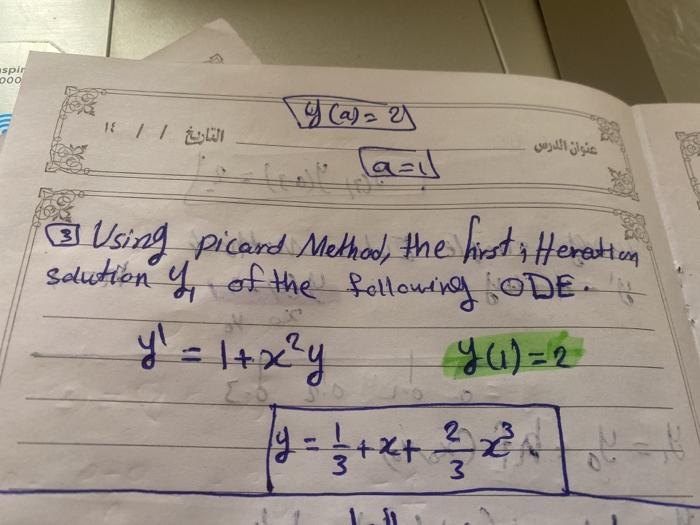 y(a) = 2
التاريخ / / ١٤
عنوان الدرس
a = 1
3 Using picard Method, the first iteration
solution y₁ of the following ODE.
y' = 1 + x²y y(1) = 2
y = 1/3 + x + 2/3 x³